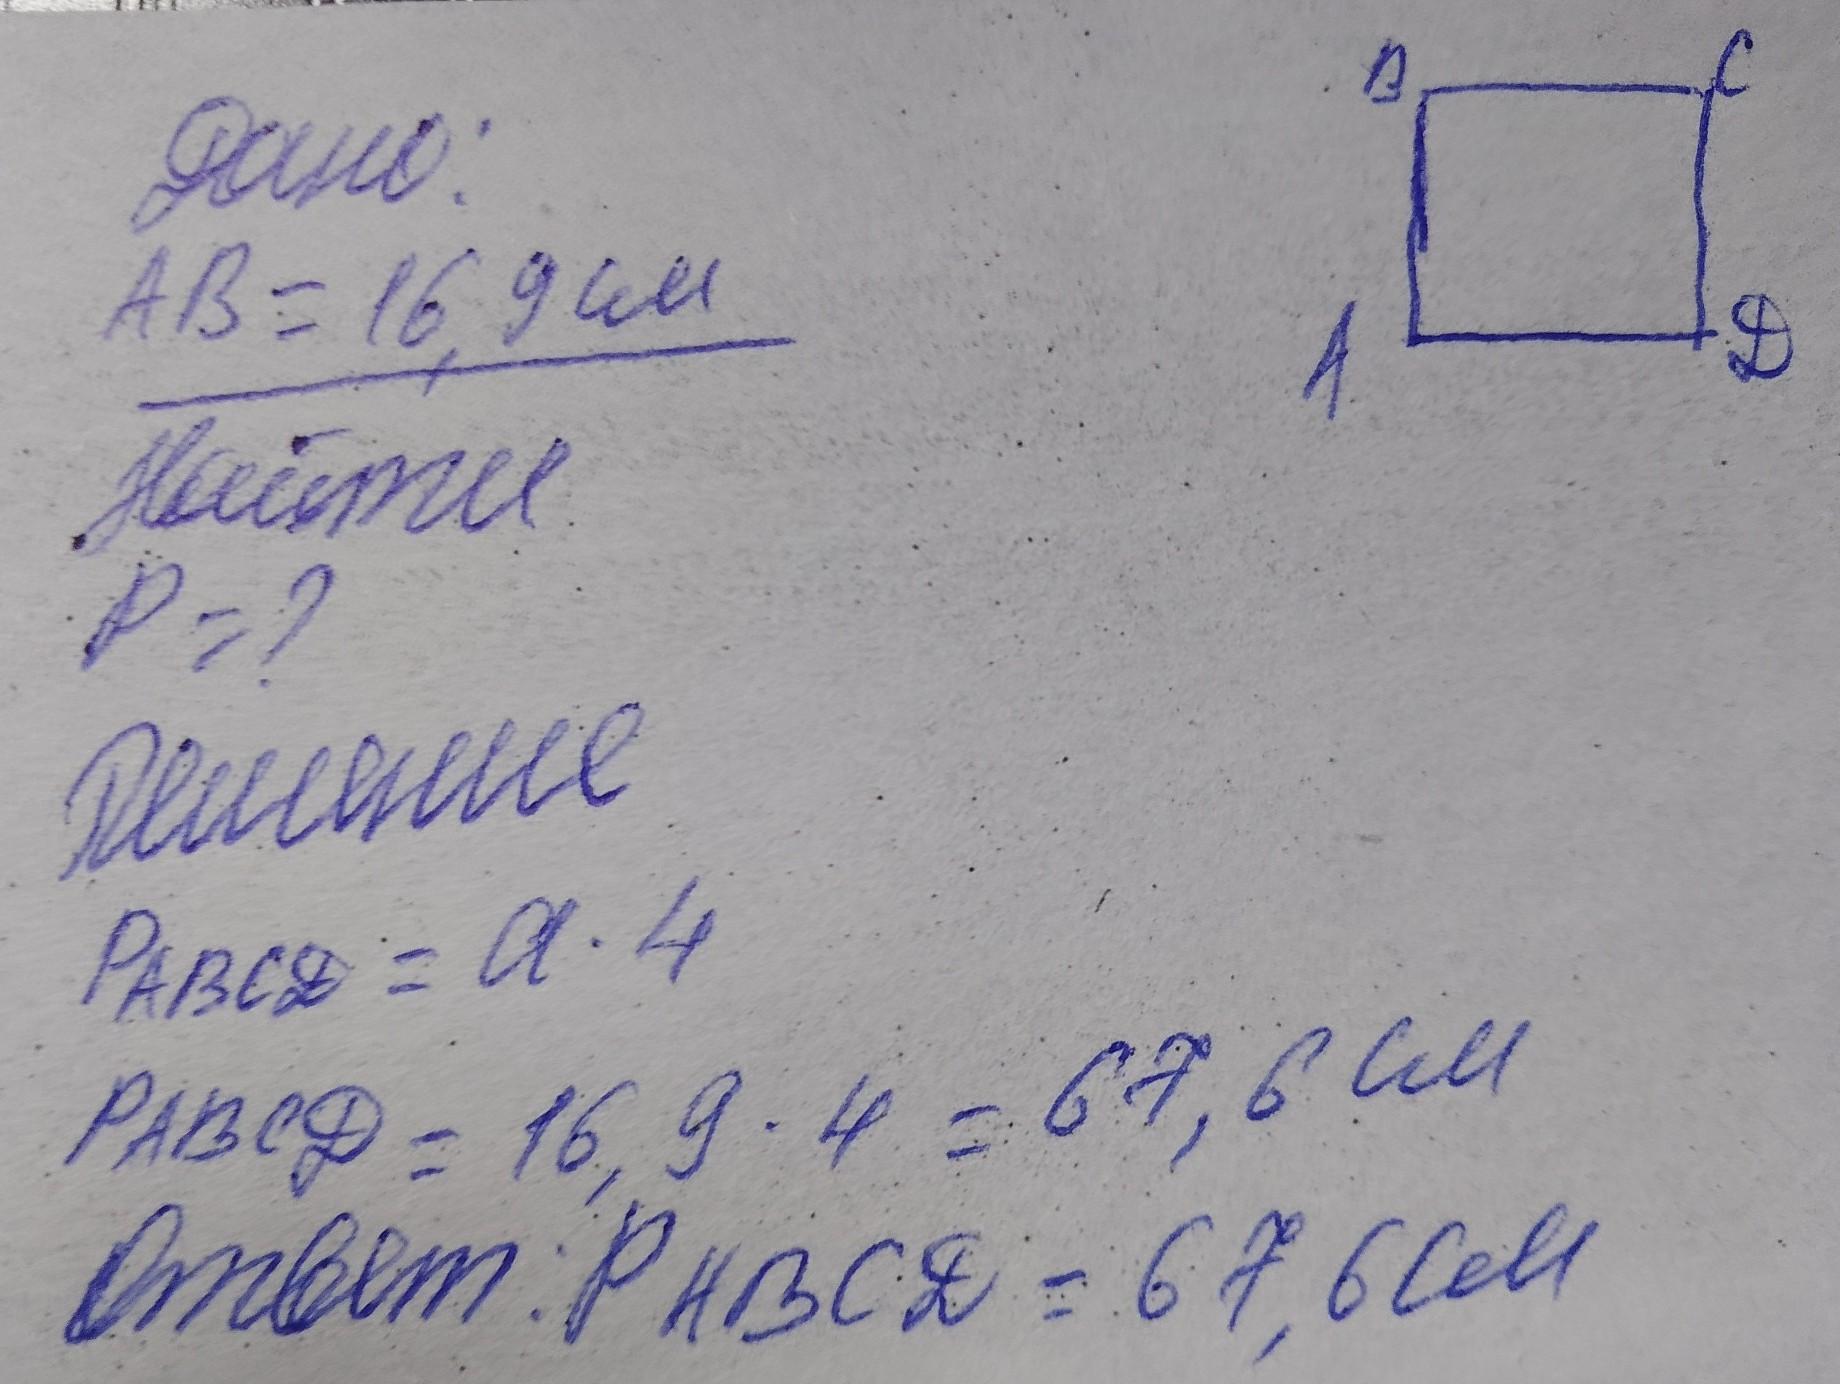 B C
Дано:
AB = 16,9 см
A D
Найти
P = ?
Решение
PABCD = a · 4
PABCD = 16,9 · 4 = 67,6 см
Ответ: PABCD = 67,6 см